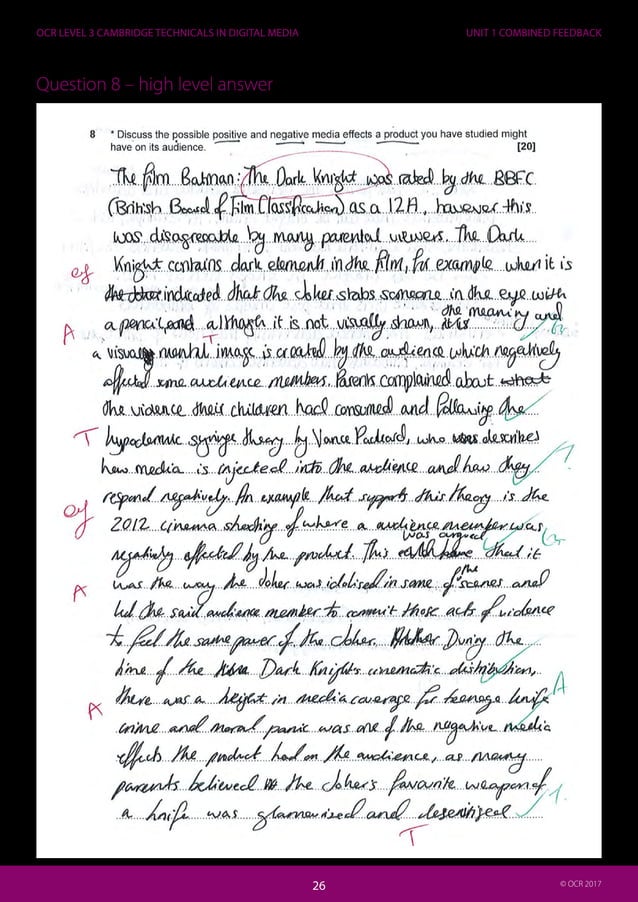 OCR LEVEL 3 CAMBRIDGE TECHNICALS IN DIGITAL MEDIA
UNIT 1 COMBINED FEEDBACK
Question 8 – high level answer
8 * Discuss the possible positive and negative media effects a product you have studied might
have on its audience. [20]
The film Batman: The Dark Knight was rated by the BBFC
(British Board of Film Classification) as a 12A, however this
was disagreeable by many parental viewers. The Dark
eg Knight contains dark elements in the film, for example when it is
the Joker indicated that the Joker stabs someone in the eye with
the meaning and
A a pencil, and although it is not visually shown, it is
T
a visual mental image is created by the audience which negatively
affected some audience members. Parents complained about what
the violence their children had consumed and following the
T hypodermic syringe theory by Vance Packard, who was describes
how media is injected into the audience and how they
respond negatively. An example that supports this theory is the
eg 2012 cinema shooting of where a audience member was
was argued
negatively affected by the product. This that it
the
A was the way the Joker was idolised in some of scenes and
led the said audience member to commit those acts of violence
to feel the same power of the Joker. During the
time of the Dark Knight's cinematic distribution,
A there was a height in media coverage for teenage knife A
crime and moral panic was one of the negative media
effects the product had on the audience, as many
parents believed the Joker's favourite weapon of
a knife was glamourised and desensitised
T
26
© OCR 2017